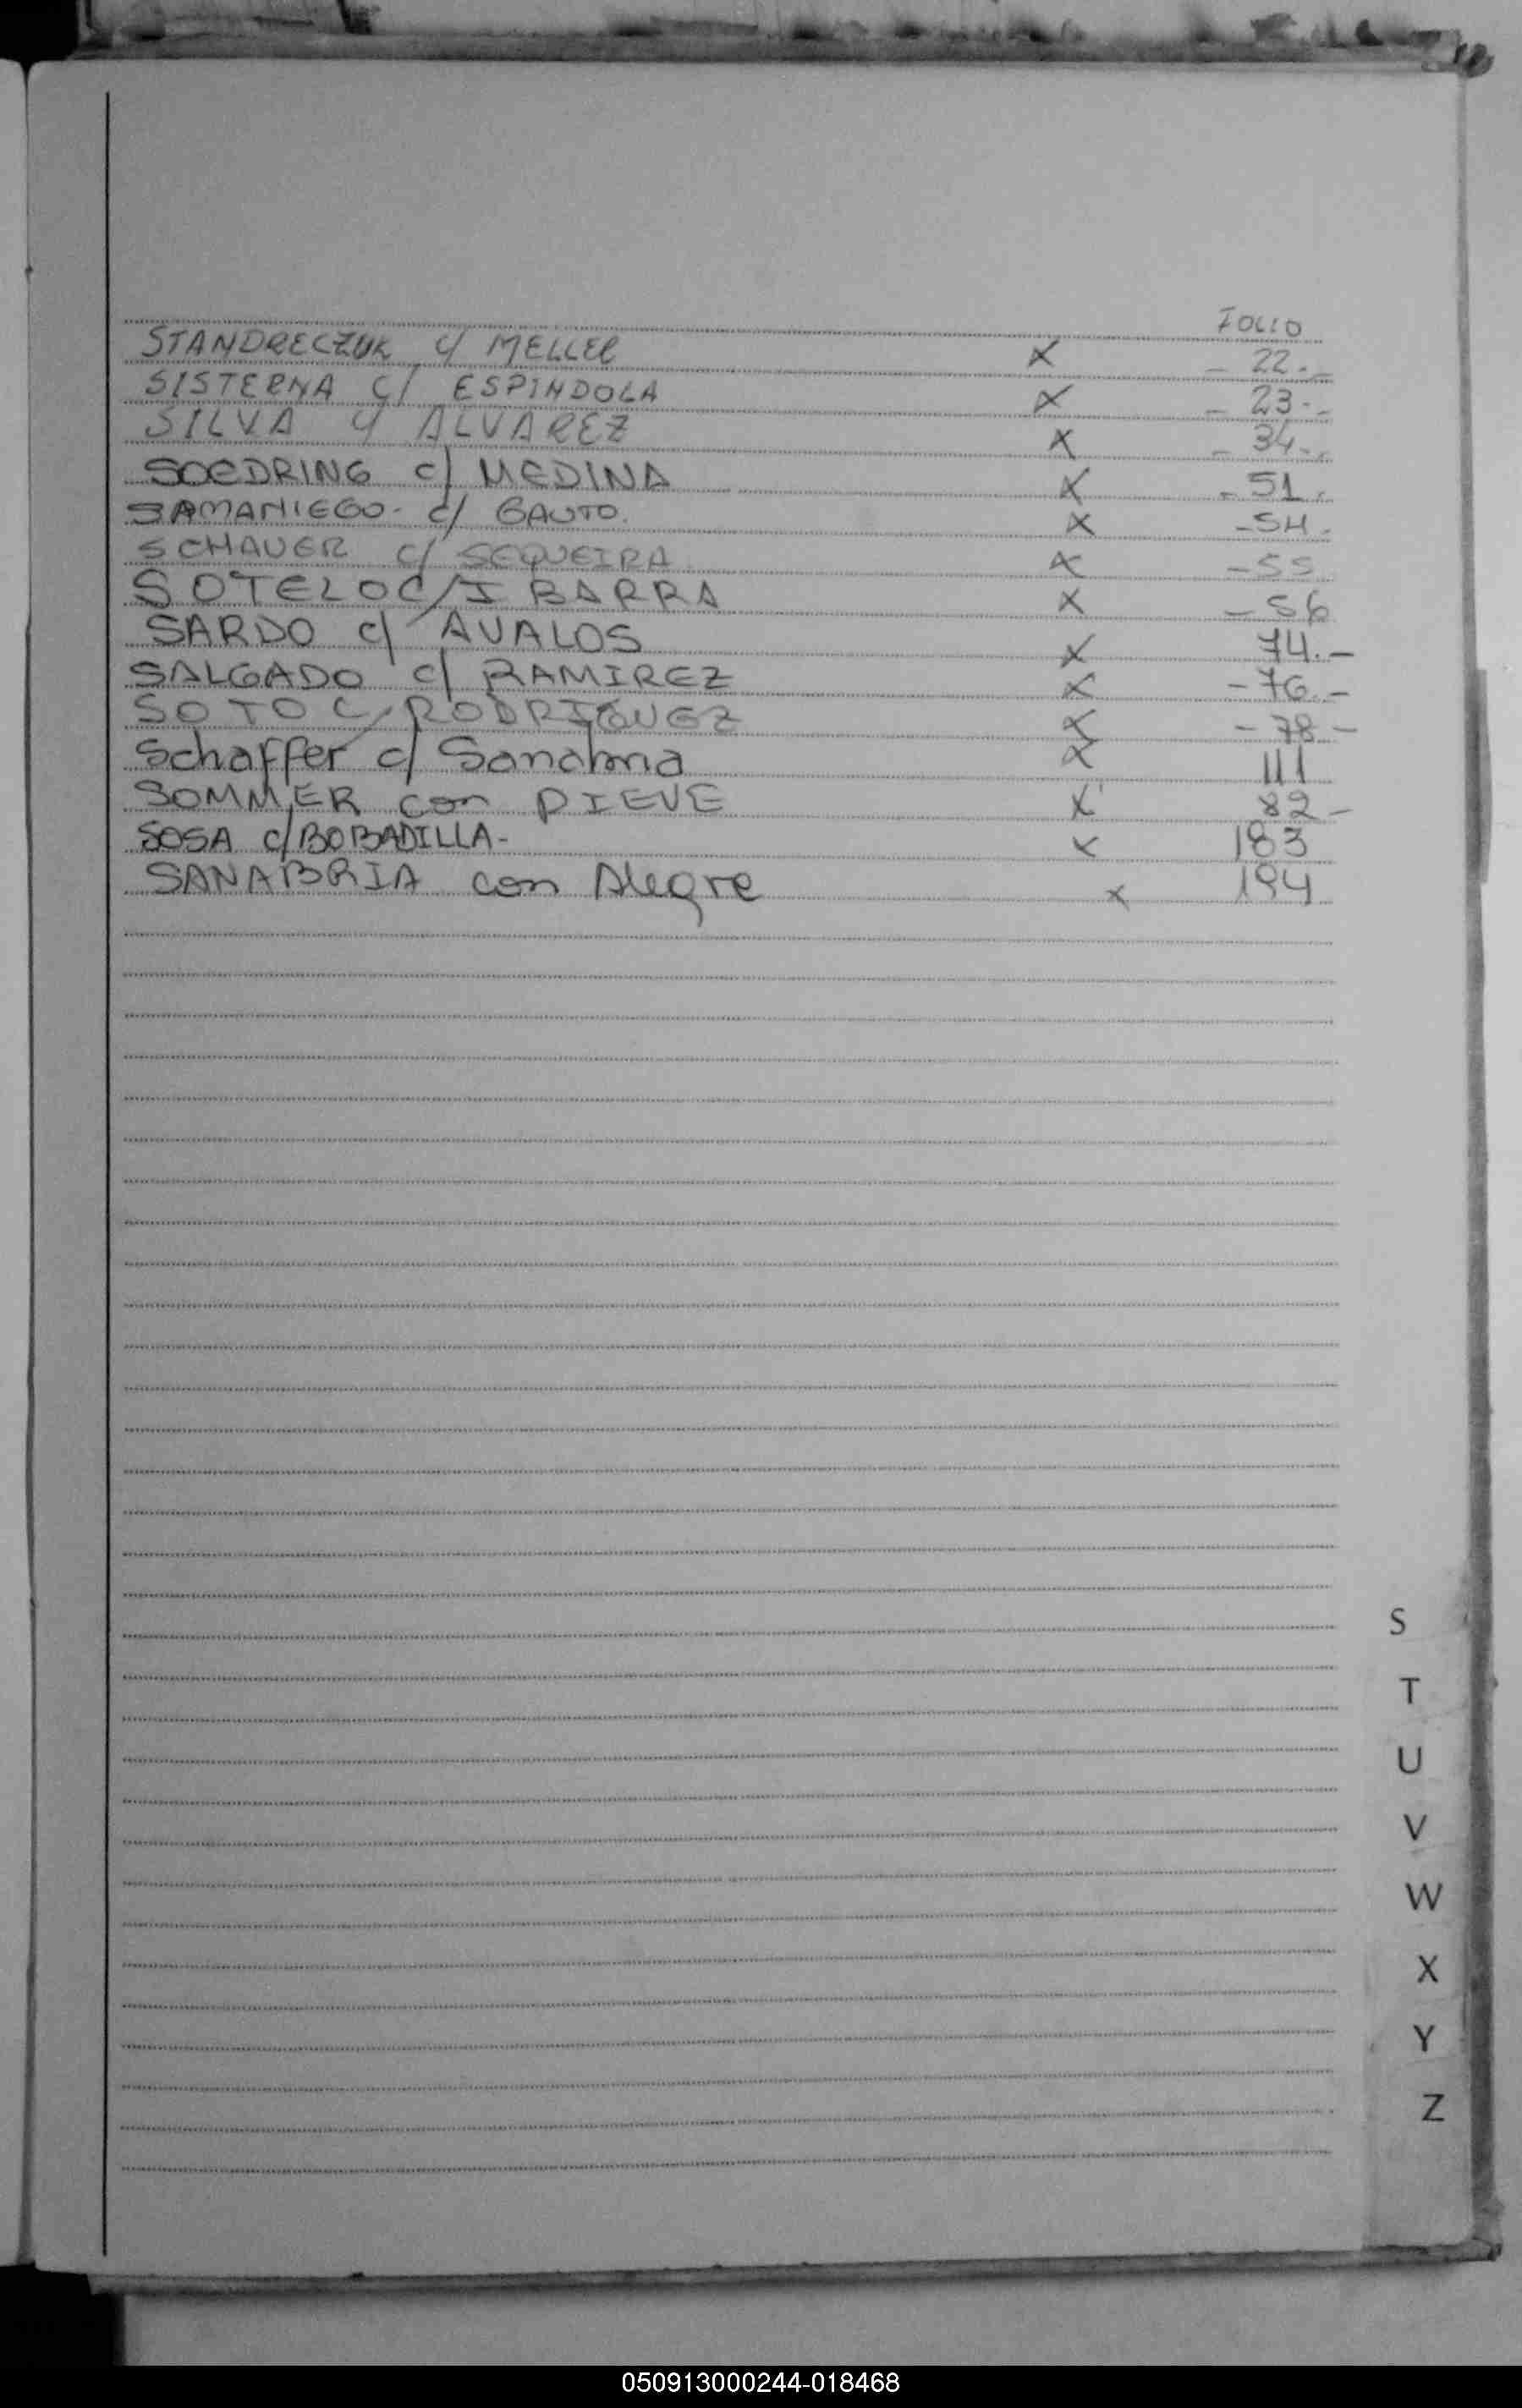 FOLIO
STANDRECZUK c/ MELLER X - 22.-
SISTERNA c/ ESPINDOLA X - 23.-
SILVA c/ ALVAREZ X - 34.-
SOEDRING c/ MEDINA X - 51.
SAMANIEGO- c/ GAUTO. X -54.
SCHAUER c/ SEQUEIRA X -55
SOTELO C/ IBARRA X - 56
SARDO c/ AVALOS X 74.-
SALGADO c/ RAMIREZ X - 76.-
SOTO C/ RODRIGUEZ X - 78 -
Schaffer c/ Sanabria X 111
SOMMER con DIEVE X 82-
SOSA c/ BOBADILLA- X 183
SANABRIA con Alegre X 194
S
T
U
V
W
X
Y
Z
050913000244-018468